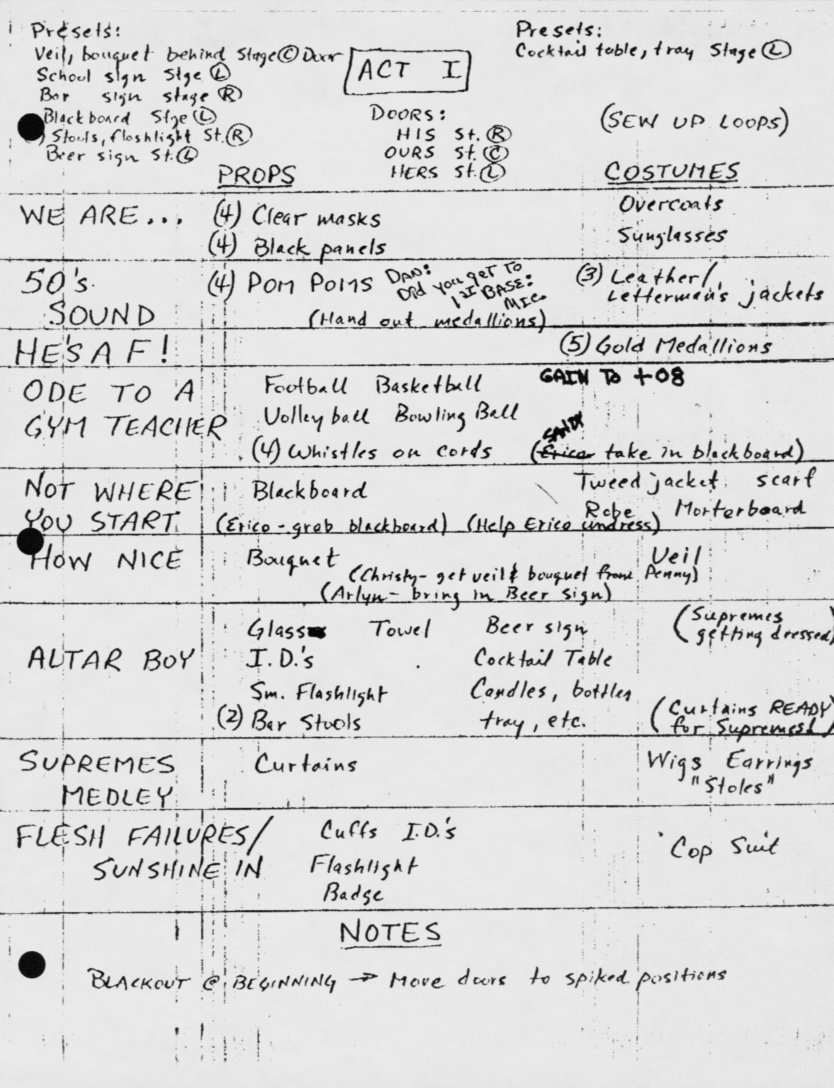 Presets:
Veil, bouquet behind Stage Ⓒ Door
School sign Stge Ⓛ
Bar sign stage Ⓡ
Blackboard Stge Ⓛ
Stools, flashlight St. Ⓡ
Beer sign St. Ⓛ
ACT I
Presets:
Cocktail table, tray Stage Ⓛ
DOORS:
HIS St. Ⓡ
OURS St. Ⓒ
HERS St. Ⓛ
(SEW UP LOOPS)
PROPS
COSTUMES
WE ARE...
(4) Clear masks
(4) Black panels
Overcoats
Sunglasses
50's
SOUND
(4) POM POMS
DAD:
Did you get to
1st BASE:
MIC.
(Hand out medallions)
(3) Leather/
Letterman's jackets
HE'S A F!
(5) Gold Medallions
ODE TO A
GYM TEACHER
Football Basketball
Volleyball Bowling Ball
(4) Whistles on cords
GAIN TO +08
SANDY
(Erica take in blackboard)
NOT WHERE
YOU START
Blackboard
Tweed jacket scarf
Robe Morterboard
(Erico - grab blackboard) (Help Erico undress)
HOW NICE
Bouquet
Veil
(Christy - get veil & bouquet from Penny)
(Arlyn - bring in Beer sign)
ALTAR BOY
Glass Towel Beer sign
I.D.'s Cocktail Table
Sm. Flashlight Candles, bottles
(2) Bar Stools tray, etc.
(Supremes
getting dressed)
(Curtains READY
for Supremes!)
SUPREMES
MEDLEY
Curtains
Wigs Earrings
"Stoles"
FLESH FAILURES/
SUNSHINE IN
Cuffs I.D.'s
Flashlight
Badge
Cop Suit
NOTES
BLACKOUT @ BEGINNING → Move doors to spiked positions